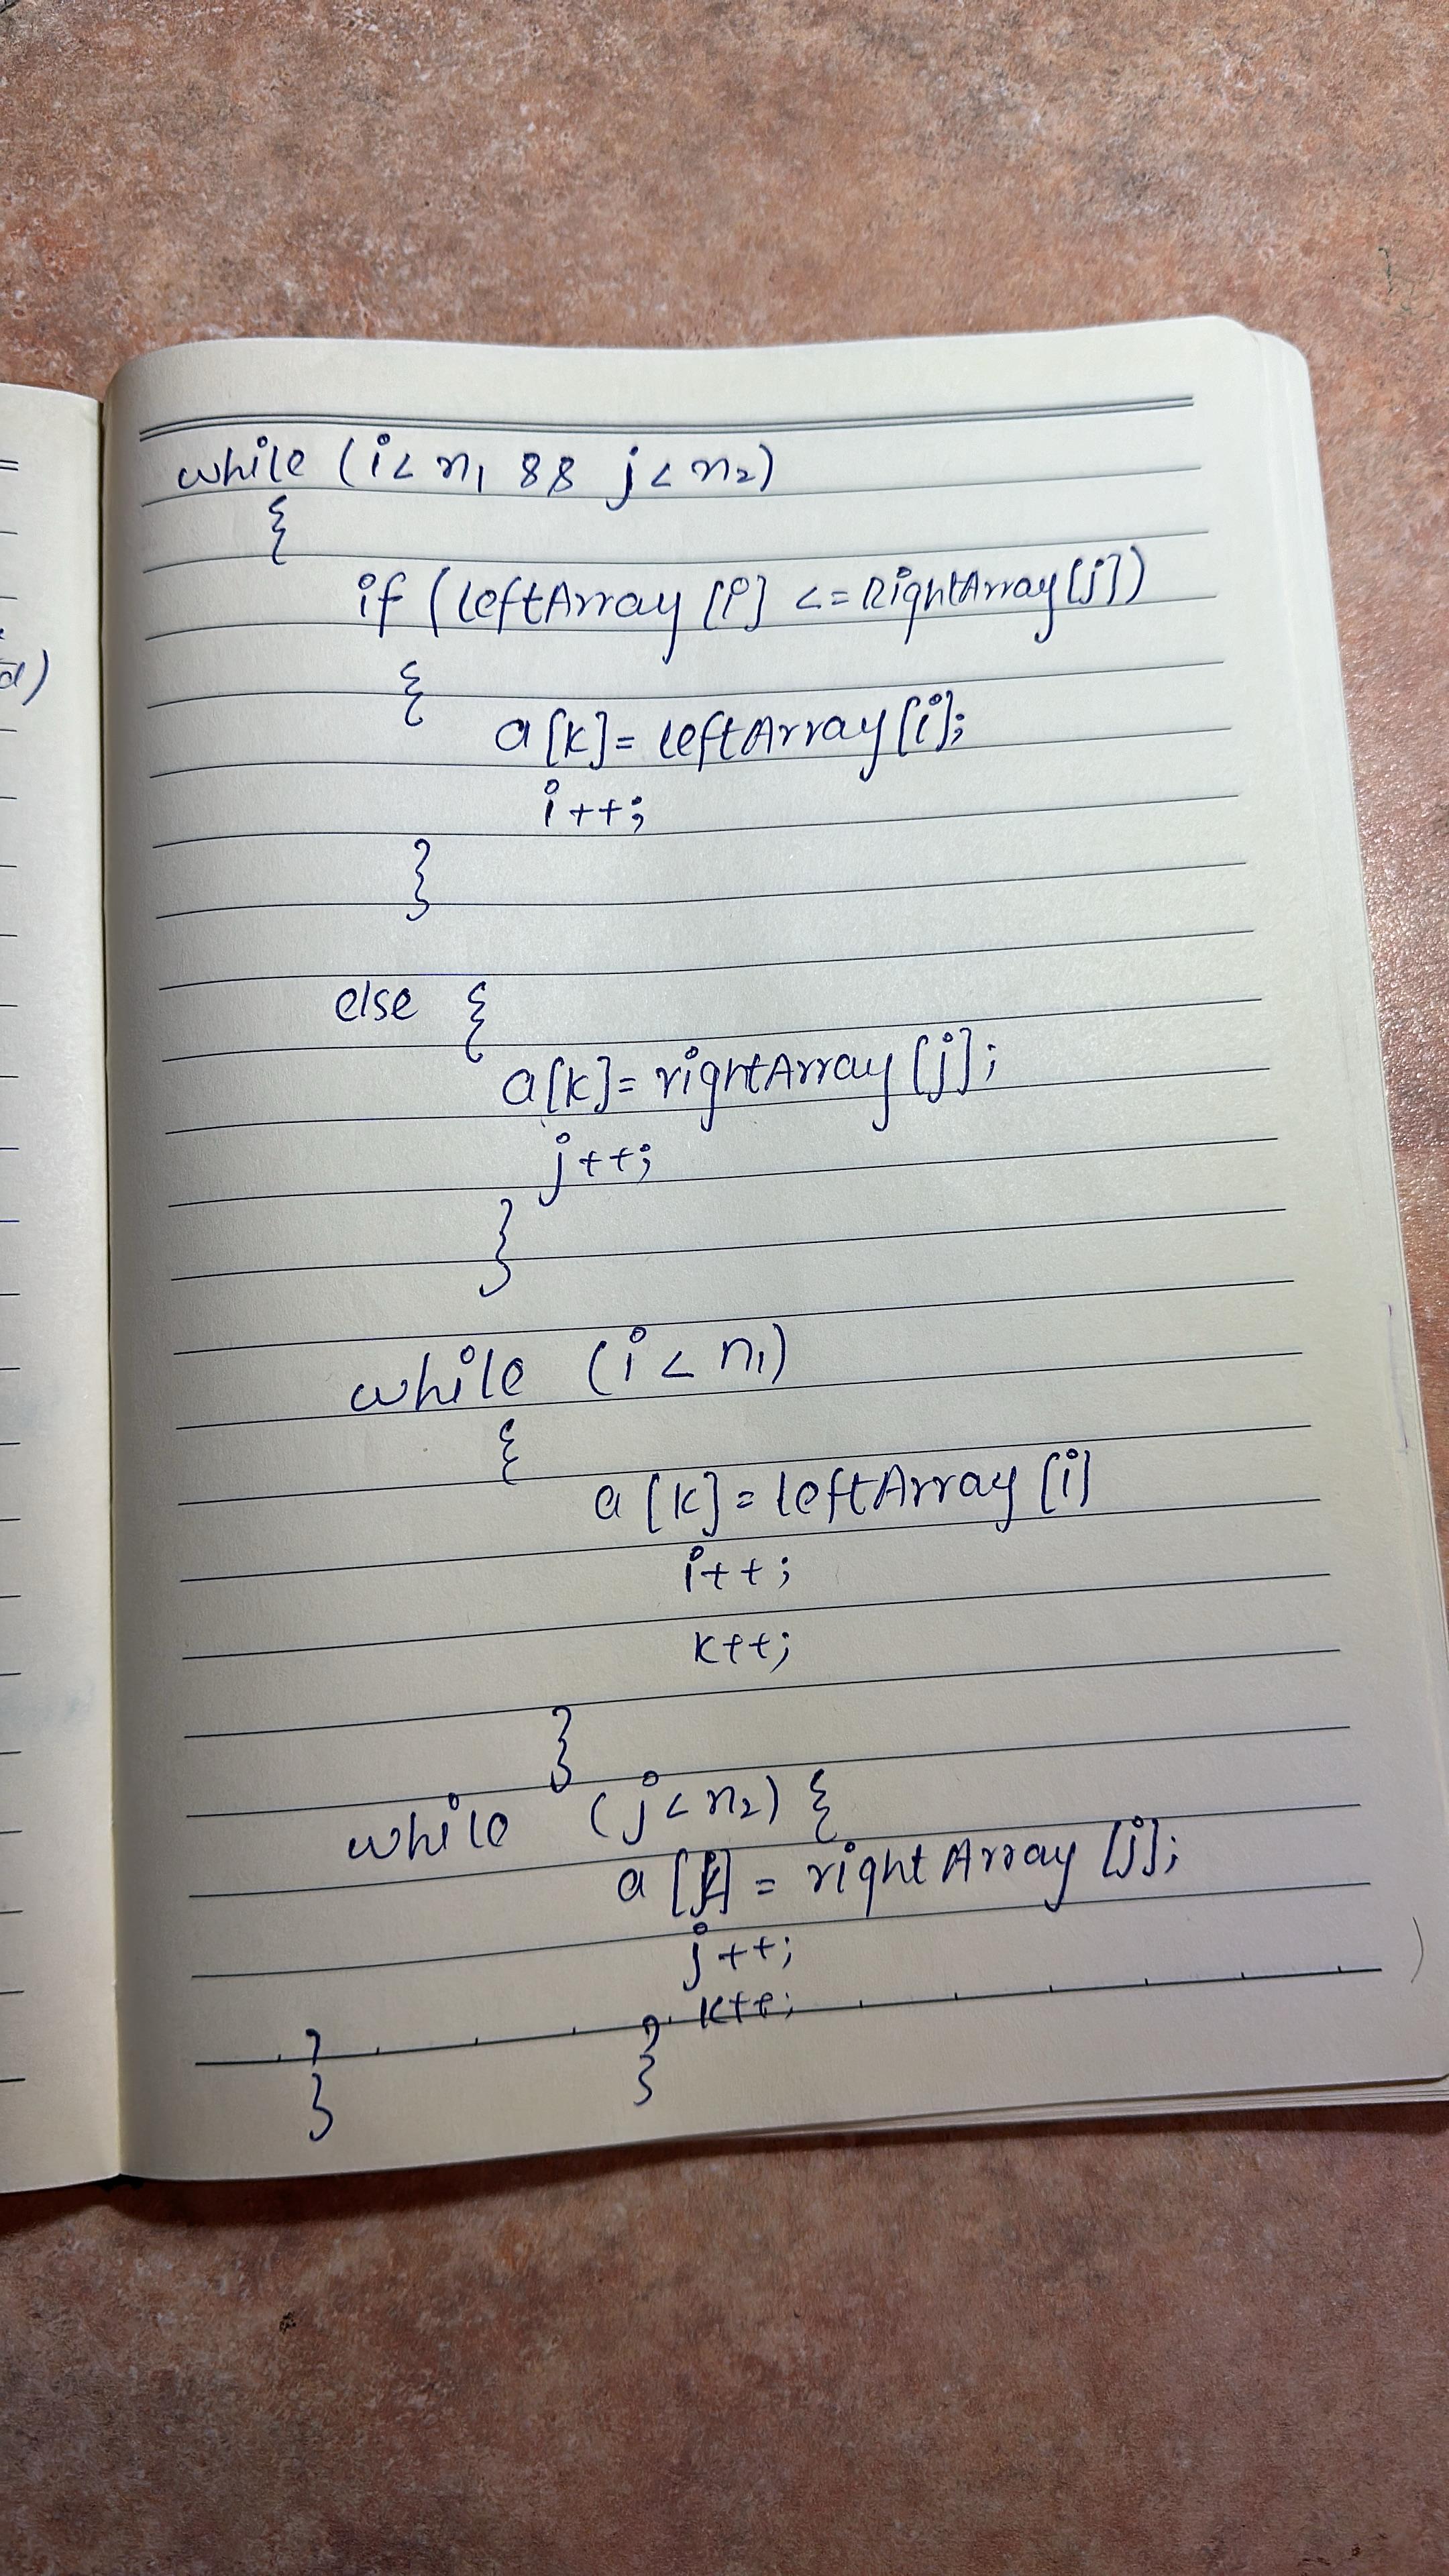 while (i< n1 && j< n2)
{
if (leftArray [i] <= RightArray[j])
{
a[k]= leftArray[i];
i++;
}
else {
a[k]= rightArray[j];
j++;
}
while (i < n1)
{
a [k] = leftArray [i]
i++;
k++;
}
while (j< n2) {
a [k] = rightArray [j];
j++;
k++;
} }
d)